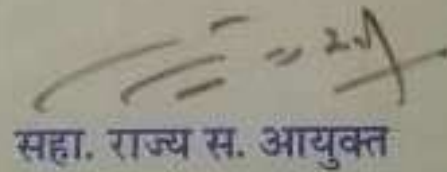 सहा. राज्य स. आयुक्त